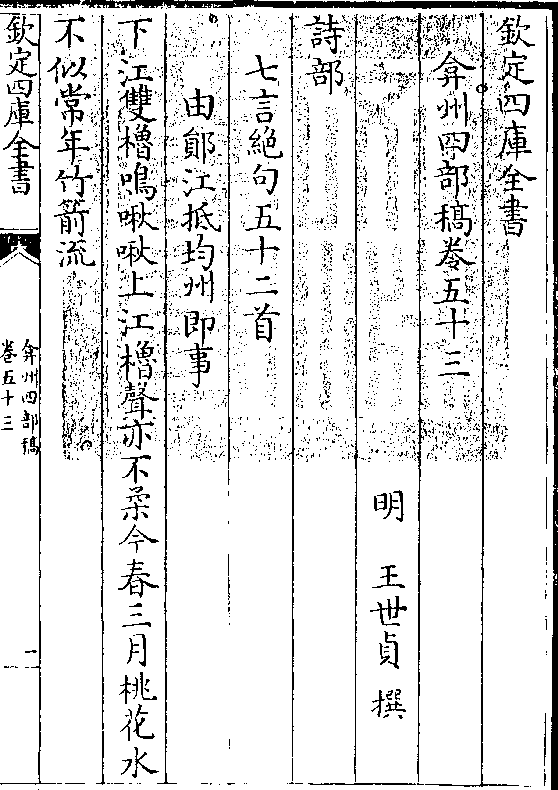 欽定四庫全書
弇州四部稿卷五十三
明 王世貞 撰
詩部
七言絶句五十二首
由鄖江抵均州即事
下江雙櫓鳴啾啾上江櫓聲亦不柔今春三月桃花水
不似常年竹箭流
欽定四庫全書
弇州四部稿
卷五十三
一